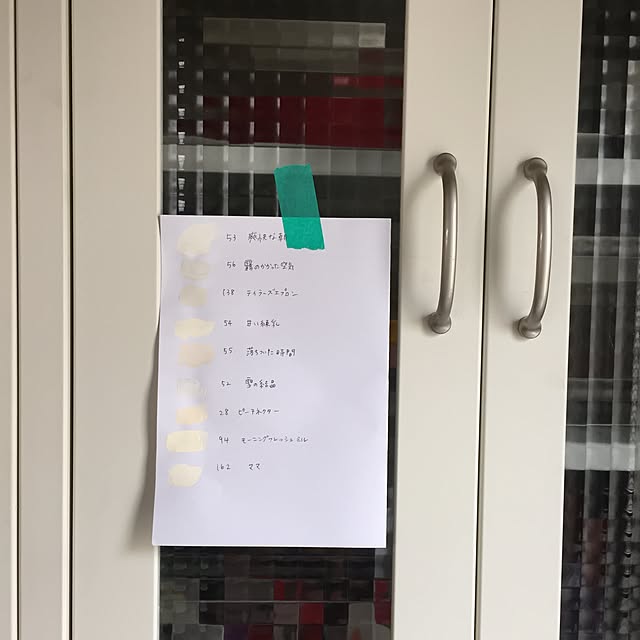 53 爽快な朝
56 霧のかかった空気
138 テイラーズエプロン
54 甘い練乳
55 落ちついた時間
52 雪の結晶
28 ピーチネクター
94 モーニングフレッシュミルク
162 ママ